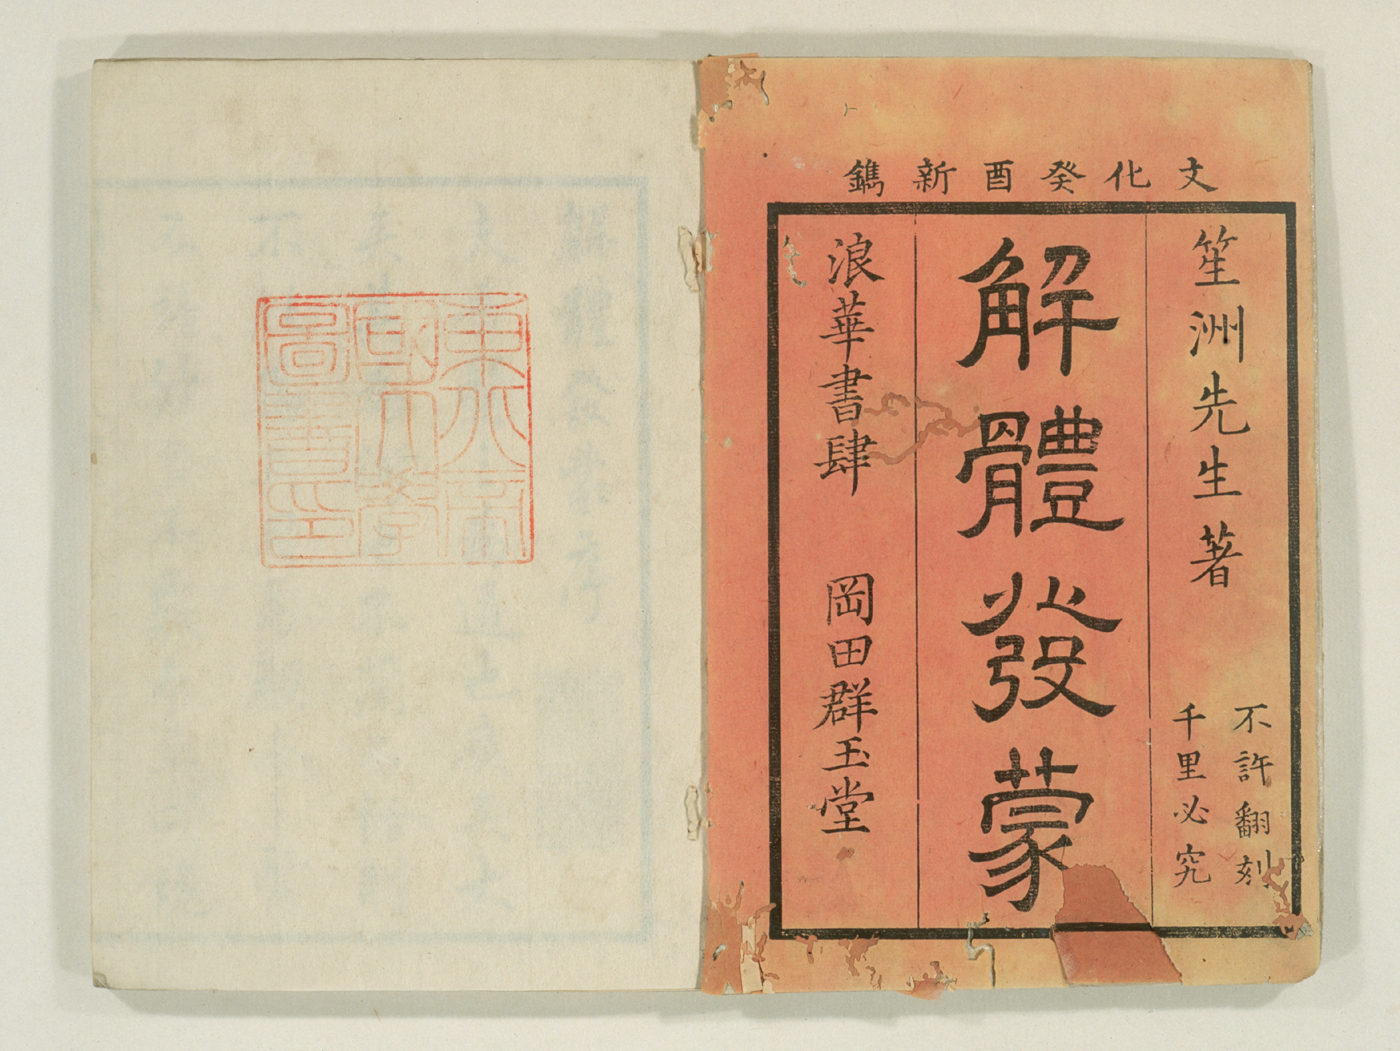 文化癸酉新鐫
笙洲先生著
不許翻刻
千里必究
解體發蒙
浪華書肆 岡田群玉堂
東京帝
國大學
圖書印